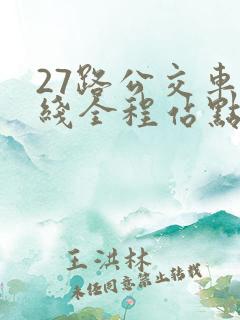 27路公交車
綫全程佔點
王洪林
未经同意禁止转载